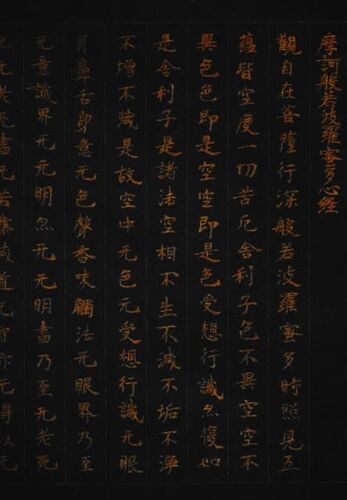 摩訶般若波羅蜜多心経
觀自在菩薩行深般若波羅蜜多時照見五
蘊皆空度一切苦厄舍利子色不異空空不
異色色即是空空即是色受想行識亦復如
是舍利子是諸法空相不生不滅不垢不浄
不増不減是故空中无色无受想行識无眼
耳鼻舌身意无色聲香味觸法无眼界乃至
无意識界无无明亦无无明盡乃至无老死
亦无老死盡无苦集滅道无智亦无得以无